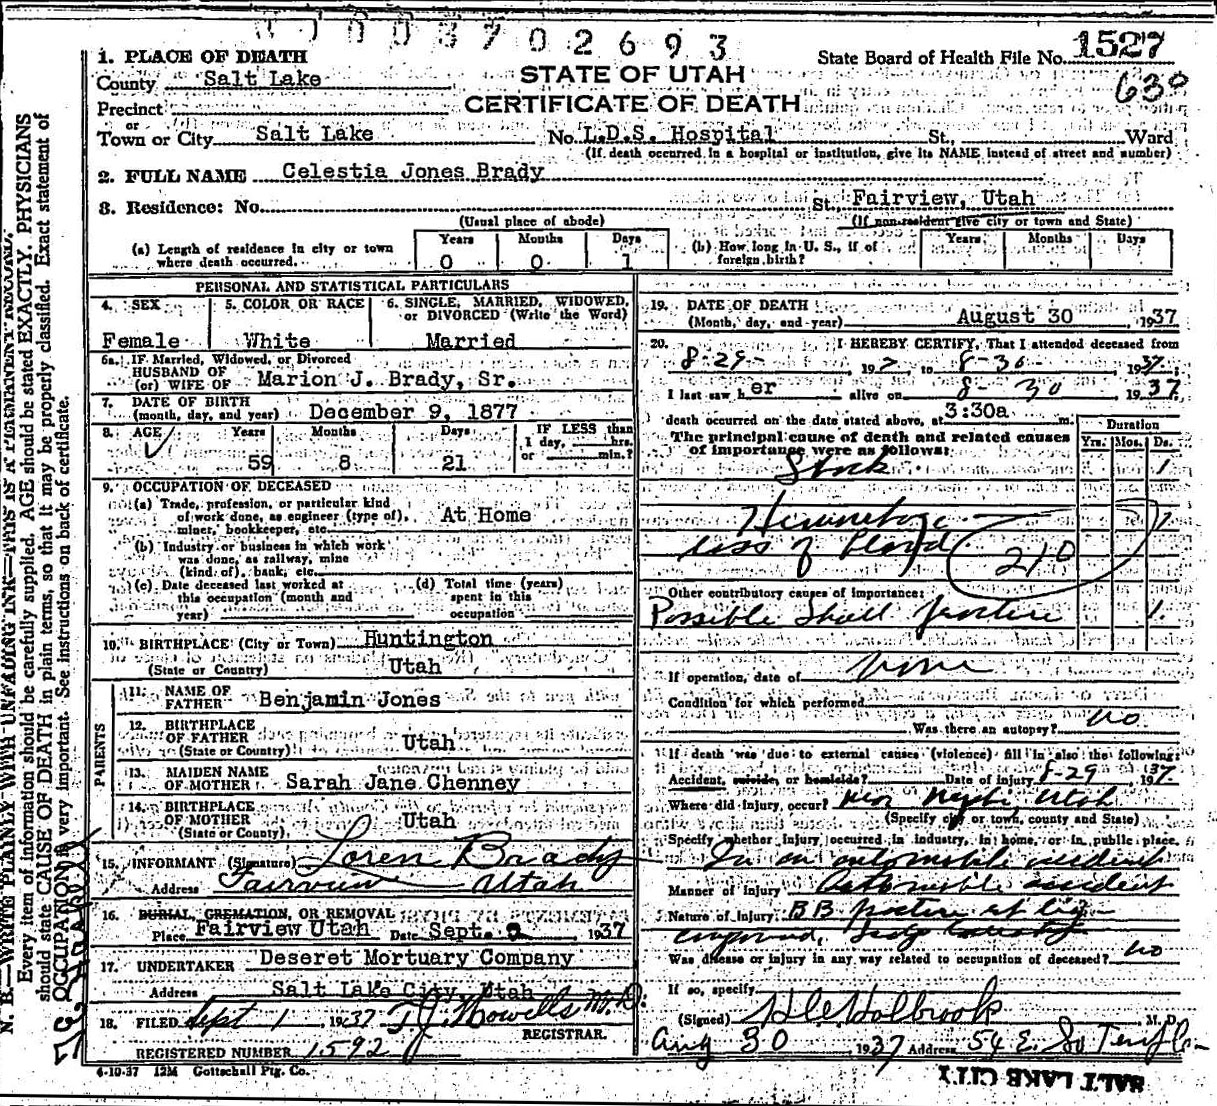 3702693
1. PLACE OF DEATH
County Salt Lake
Precinct
or
Town or City Salt Lake
STATE OF UTAH
CERTIFICATE OF DEATH
State Board of Health File No. 1527
630
No. L.D.S. Hospital St. Ward
(If death occurred in a hospital or institution, give its NAME instead of street and number)
2. FULL NAME Celestia Jones Brady
3. Residence: No. St. Fairview, Utah
(Usual place of abode) (If non-resident give city or town and State)
(a) Length of residence in city or town where death occurred. Years 0 Months 0 Days 1
(b) How long in U. S., if of foreign birth? Years Months Days
PERSONAL AND STATISTICAL PARTICULARS
4. SEX Female
5. COLOR OR RACE White
6. SINGLE, MARRIED, WIDOWED, or DIVORCED (Write the Word) Married
6a. IF Married, Widowed, or Divorced
HUSBAND OF
(or) WIFE OF Marion J. Brady, Sr.
7. DATE OF BIRTH
(month, day, and year) December 9, 1877
8. AGE Years 59 Months 8 Days 21 IF LESS than 1 day, hrs. or min.?
9. OCCUPATION OF DECEASED
(a) Trade, profession, or particular kind of work done, as engineer (type of), miner, bookkeeper, etc. At Home
(b) Industry or business in which work was done, as railway, mine (kind of), bank, etc.
(c) Date deceased last worked at this occupation (month and year)
(d) Total time (years) spent in this occupation
10. BIRTHPLACE (City or Town) Huntington
(State or Country) Utah
PARENTS
11. NAME OF FATHER Benjamin Jones
12. BIRTHPLACE OF FATHER
(State or Country) Utah
13. MAIDEN NAME OF MOTHER Sarah Jane Chenney
14. BIRTHPLACE OF MOTHER
(State or Country) Utah
15. INFORMANT (Signature) Loren Brady
Address Fairview Utah
16. BURIAL, CREMATION, OR REMOVAL
Place Fairview Utah Date Sept. 1937
17. UNDERTAKER Deseret Mortuary Company
Address Salt Lake City, Utah
18. FILED Sept 1 1937 T.J. Howells M.D.
REGISTRAR.
REGISTERED NUMBER 1592
4-10-37 12M Gottschall Ptg. Co.
19. DATE OF DEATH
(Month, day, and year) August 30 1937
20. I HEREBY CERTIFY, That I attended deceased from
8-29- 1937 to 8-30- 1937
I last saw her alive on 8-30 1937
death occurred on the date stated above, at 3:30a m.
The principal cause of death and related causes of importance were as follows:
Duration
Yrs. Mos. Ds.
Shock 1
Hemorrhage 1
loss of blood
210
Other contributory causes of importance:
Possible Skull fracture 1
If operation, date of none
Condition for which performed
Was there an autopsy? no
If death was due to external causes (violence) fill in also the following:
Accident, suicide, or homicide? Date of injury 8-29 1937
Where did injury occur? near Nephi, Utah
(Specify city or town, county and State)
Specify whether injury occurred in industry, in home, or in public place.
In an automobile accident
Manner of injury Automobile accident
Nature of injury
Was disease or injury in any way related to occupation of deceased? no
If so, specify
(Signed) Holbrook M. D.
Aug 30 1937 Address 54 E. So Temple
SALT LAKE CITY
N. B.—WRITE PLAINLY WITH UNFADING INK—THIS IS A PERMANENT RECORD.
Every item of information should be carefully supplied. AGE should be stated EXACTLY. PHYSICIANS
should state CAUSE OF DEATH in plain terms, so that it may be properly classified. Exact statement of
OCCUPATION is very important. See instructions on back of certificate.